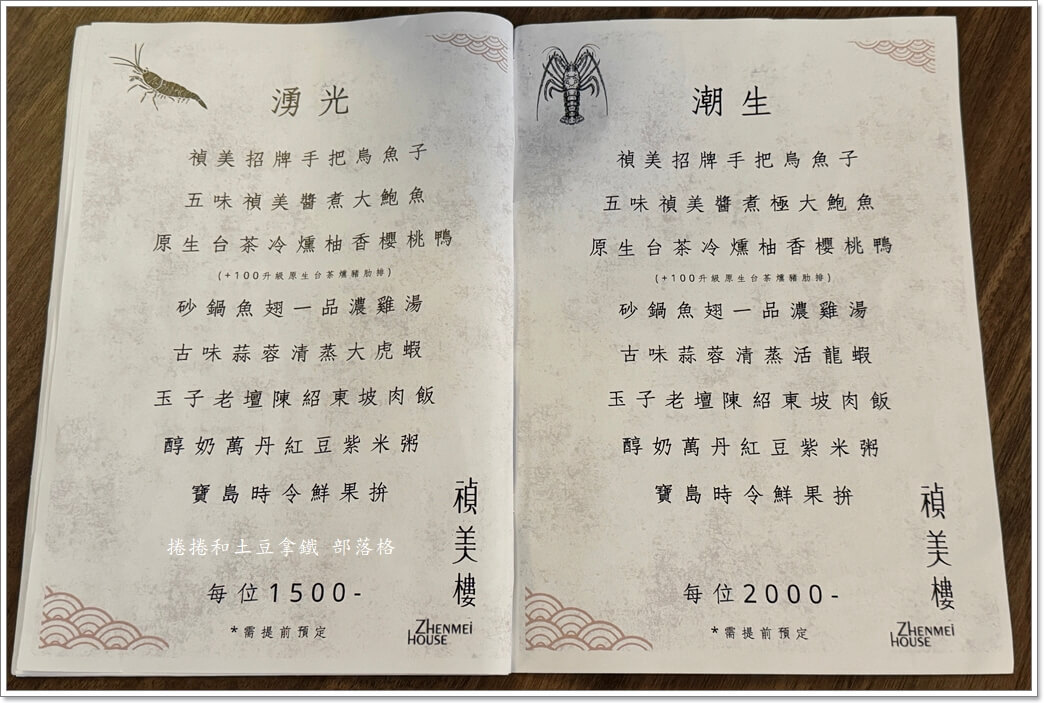 湧光
禎美招牌手把烏魚子
五味禎美醬煮大鮑魚
原生台茶冷燻柚香櫻桃鴨
(+100升級原生台茶燻豬肋排)
砂鍋魚翅一品濃雞湯
古味蒜蓉清蒸大虎蝦
玉子老壇陳紹東坡肉飯
醇奶萬丹紅豆紫米粥
寶島時令鮮果拚
捲捲和土豆拿鐵 部落格
每位1500-
*需提前預定
禎美樓
ZHENMEI
HOUSE
潮生
禎美招牌手把烏魚子
五味禎美醬煮極大鮑魚
原生台茶冷燻柚香櫻桃鴨
(+100升級原生台茶燻豬肋排)
砂鍋魚翅一品濃雞湯
古味蒜蓉清蒸活龍蝦
玉子老壇陳紹東坡肉飯
醇奶萬丹紅豆紫米粥
寶島時令鮮果拚
每位2000-
*需提前預定
禎美樓
ZHENMEI
HOUSE